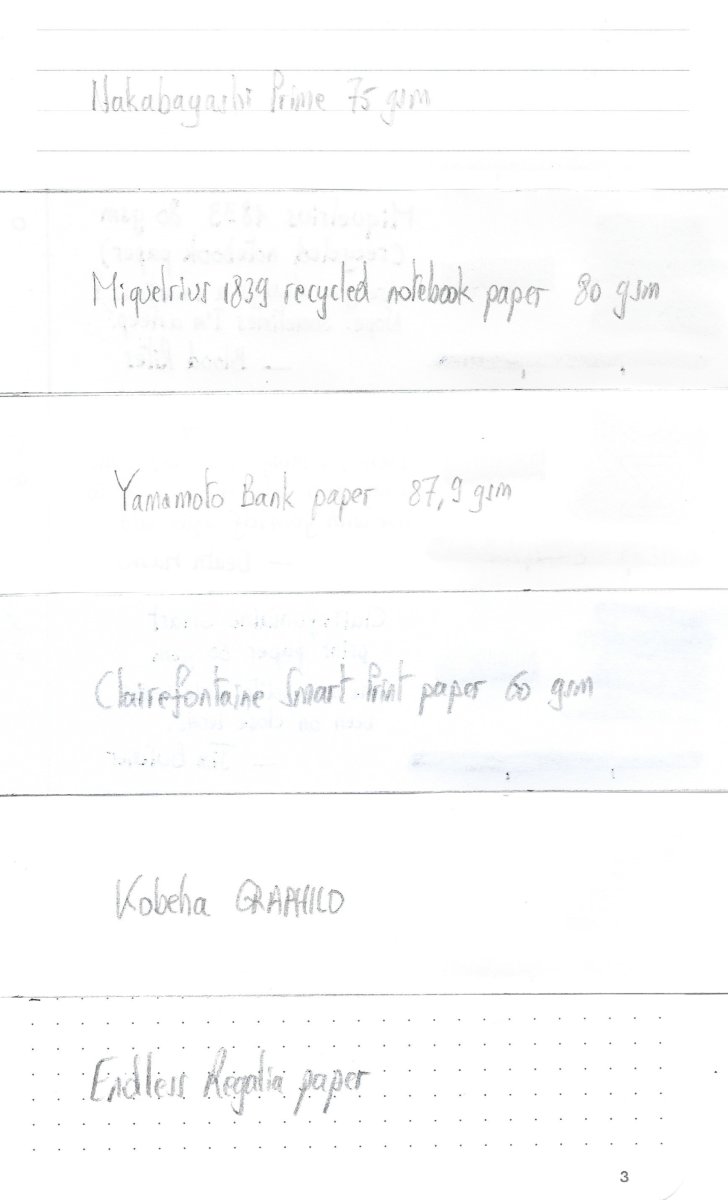 Nakabayashi Prime 75 gsm
Miquelrius 1839 recycled notebook paper 80 gsm
Yamamoto Bank paper 87,9 gsm
Clairefontaine Smart Print paper 60 gsm
Kobeha GRAPHILO
Endless Regalia paper
3